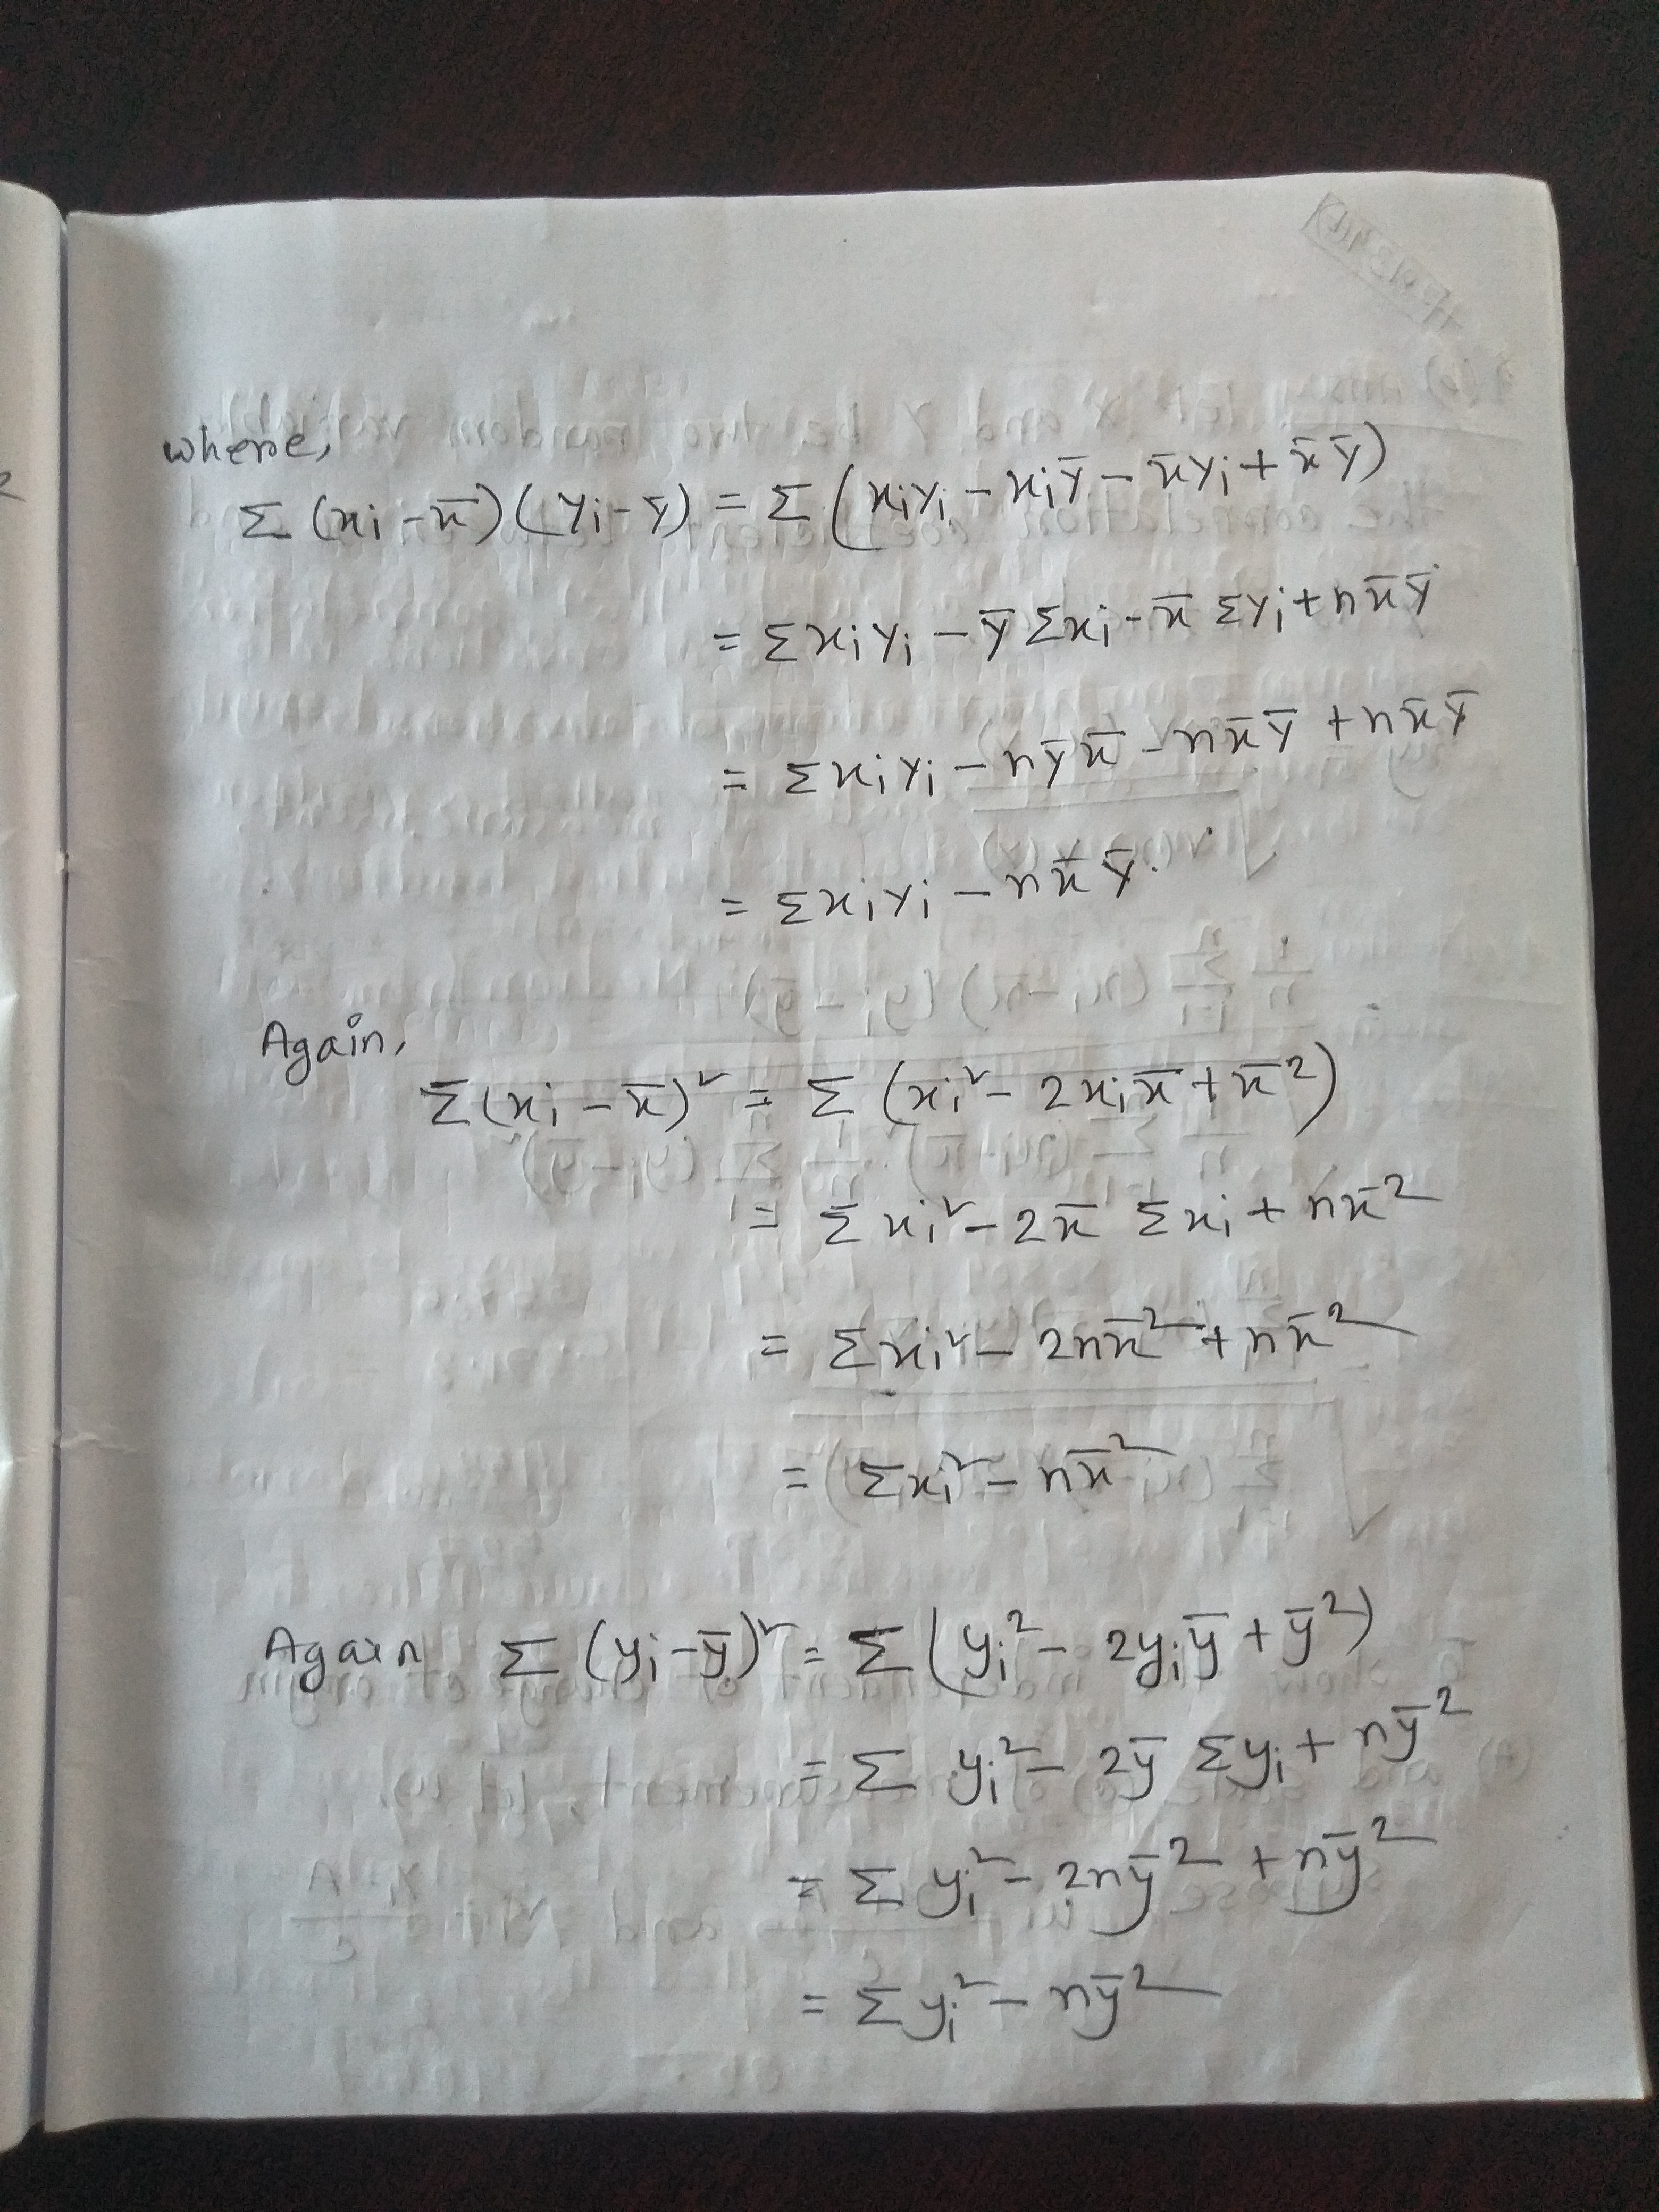 where,
Σ (xi - x̄)(yi - ȳ) = Σ (xiyi - xiȳ - x̄yi + x̄ȳ)
= Σxiyi - ȳ Σxi - x̄ Σyi + nx̄ȳ
= Σxiyi - nȳx̄ - nx̄ȳ + nx̄ȳ
= Σxiyi - nx̄ȳ.
Again,
Σ(xi - x̄)² = Σ (xi² - 2xix̄ + x̄²)
= Σxi² - 2x̄ Σxi + nx̄²
= Σxi² - 2nx̄² + nx̄²
= Σxi² - nx̄²
Again Σ (yi - ȳ)² = Σ (yi² - 2yiȳ + ȳ²)
= Σ yi² - 2ȳ Σyi + nȳ²
= Σ yi² - 2nȳ² + nȳ²
= Σyi² - nȳ²